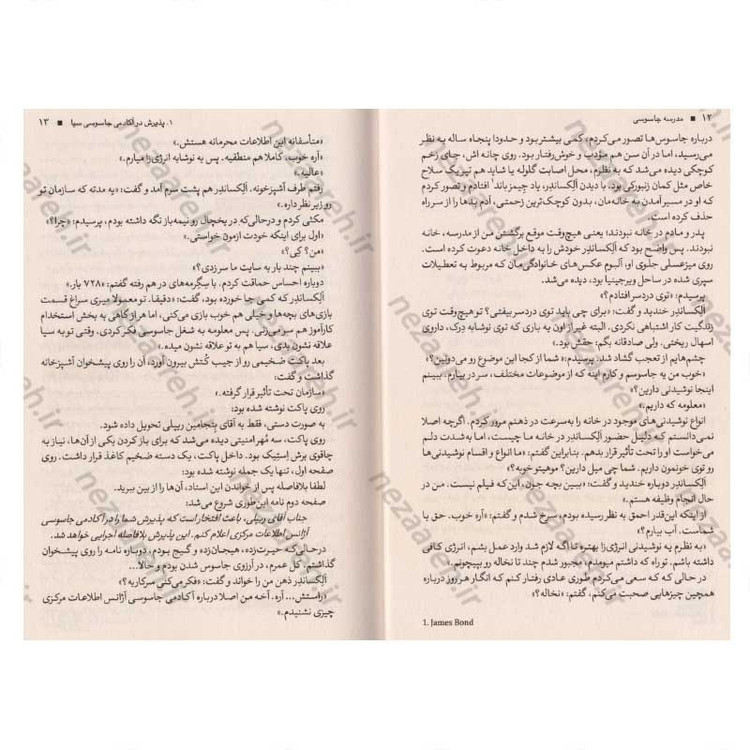 ۱۲ ■ مدرسه جاسوسی
درباره جاسوس‌ها تصور می‌کردم، کمی بیشتر بود و حدودا پنجاه ساله به نظر
می‌رسید، اما در آن سن هم مؤدب و خوش‌رفتار بود. روی چانه اش، جای زخم
کوچکی دیده می‌شد که به نظرم، محل اصابت گلوله یا شاید هم تیر یک سلاح
خاص مثل کمان زنبورکی بود. با دیدن الکساندر، یاد جیمز باند۱ افتادم و تصور کردم
که او در مسیر آمدن به خانه‌مان، بدون کوچک‌ترین زحمتی، آدم بدها را از سر راه
حذف کرده است.
پدر و مادرم در خانه نبودند؛ یعنی هیچ‌وقت موقع برگشتن من از مدرسه، خانه
نبودند. پس واضح بود که الکساندر خودش را به داخل خانه دعوت کرده است.
روی میزعسلی جلوی او، آلبوم عکس‌های خانوادگی‌مان که مربوط به تعطیلات
سپری شده در ساحل ویرجینیا بود، دیده می‌شد.
پرسیدم: «توی دردسر افتادم؟»
الکساندر خندید و گفت: «برای چی باید توی دردسر بیفتی؟ تو هیچ‌وقت توی
زندگیت کار اشتباهی نکردی. البته غیر از اون یه باری که توی نوشابه درک، داروی
اسهال ریختی. ولی صادقانه بگم: حقش بود.»
چشم‌هایم از تعجب گشاد شد. پرسیدم: «شما از کجا این موضوع رو می‌دونین؟»
«خوب من یه جاسوسم و کارم اینه که از موضوعات مختلف، سر در بیارم. ببینم
اینجا نوشیدنی دارین؟»
«معلومه که داریم.»
انواع نوشیدنی‌های موجود در خانه را به‌سرعت در ذهنم مرور کردم. اگرچه اصلا
نمی‌دانستم که دلیل حضور الکساندر در خانه ما چیست، اما به‌شدت دلم
می‌خواست او را تحت تأثیر قرار بدهم. بنابراین گفتم: «ما انواع و اقسام نوشیدنی‌ها
رو توی خونمون داریم. شما چی میل دارین؟ موهیتو خوبه؟»
الکساندر دوباره خندید و گفت: «ببین بچه جون، این‌که فیلم نیست. من در
حال انجام وظیفه هستم.»
از اینکه این‌قدر احمق به نظر رسیده بودم، سرخ شدم و گفتم: «آره خوب. حق با
شماست. آب بیارم؟»
«به نظرم یه نوشیدنی انرژی‌زا بهتره تا اگه لازم شد وارد عمل بشم، انرژی کافی
داشته باشم. تو راه که داشتم میومدم، مجبور شدم چند تا نخاله رو بپیچونم.»
در حالی که که سعی می‌کردم طوری عادی رفتار کنم که انگار هر روز درباره
همچین چیزهایی صحبت می‌کنم، گفتم: «نخاله؟»
1. James Bond
۱. پذیرش در آکادمی جاسوسی سیا ■ ۱۳
«متأسفانه این اطلاعات محرمانه هستش.»
«آره خوب، کاملا هم منطقیه. پس یه نوشابه انرژی‌زا میارم.»
«عالیه.»
رفتم طرف آشپزخونه. الکساندر هم پشت سرم آمد و گفت: «یه مدته که سازمان تو
رو زیر نظر داره.»
مکثی کردم و درحالی‌که در یخچال رو نیمه‌باز نگه داشته بودم، پرسیدم: «چرا؟»
«اول برای اینکه خودت ازمون خواستی.»
«من؟ کِی؟»
«ببینم چند بار به سایت ما سر زدی؟»
دوباره احساس حماقت کردم. با سگرمه‌های در هم رفته گفتم: «۷۲۸ بار.»
الکساندر که کمی جا خورده بود، گفت: «دقیقا. تو معمولا میری سراغ قسمت
بازی‌های بچه‌ها و خیلی هم خوب بازی می‌کنی، اما هراز گاهی به بخش استخدام
کارآموز هم سر می‌زنی. پس معلومه به شغل جاسوسی فکر کردی. وقتی تو به سیا
علاقه نشون بدی، سیا هم به تو علاقه نشون میده.»
بعد پاکت ضخیمی رو از جیب کُتش بیرون آورد، آن را روی پیشخوان آشپزخانه
گذاشت و گفت:
«سازمان تحت تأثیر قرار گرفته.»
روی پاکت نوشته شده بود:
به صورت دستی، فقط به آقای بنجامین ریپلی تحویل داده شود.
روی پاکت، سه مُهر امنیتی دیده می‌شد که برای باز کردن یکی از آن‌ها، نیاز به
چاقوی برش استیک بود. داخل پاکت، یک دسته ضخیم کاغذ قرار داشت. روی
صفحه اول، تنها یک جمله نوشته شده بود:
لطفا بلافاصله پس از خواندن این اسناد، آن‌ها را از بین ببرید.
صفحه دوم نامه این‌طوری شروع می‌شد:
جناب آقای ریپلی، باعث افتخار است که پذیرش شما را در آکادمی جاسوسی
آژانس اطلاعات مرکزی اعلام کنم. این پذیرش بلافاصله اجرایی خواهد شد.
درحالی‌که حیرت‌زده، هیجان‌زده و گیج بودم، دوباره نامه را روی پیشخوان
گذاشتم. کل عمرم، در آرزوی جاسوس شدن بودم و حالا...
الکساندر ذهن من را خواند و گفت: «فکر می‌کنی سرکاریه؟»
«راستش... آره. آخه من اصلا درباره آکادمی جاسوسی آژانس اطلاعات مرکزی
چیزی نشنیدم.»
nezaaneh.ir